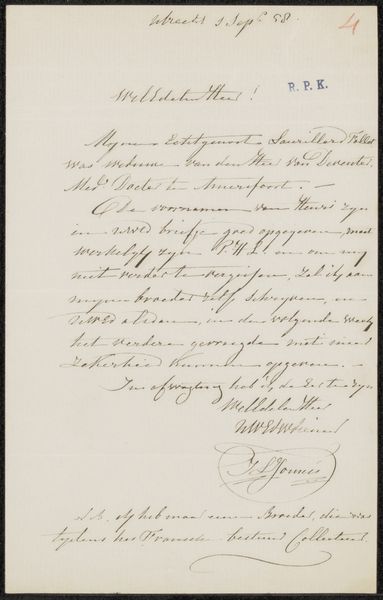 Utrecht 1 Sept. 58.
4
WelEdelen Heer!
R. P. K.
Mijne Echtgenoot Saurillard Fallot
was weduwe van den Heer van Deventer
Med. Doctor te Amersfoort. —
De voornamen van Henri zijn
in UwEd briefje goed opgegeven, maar
werkelijk zijn P. H. L. en om mij
niet verder te vergissen, zal ik aan
mijne broeder zelf schrijven, en
UwEd alsdan, in de volgende week
het verdere gevraagde met meer
zekerheid kunnen opgeven. —
In afwachting heb ik de Eer te zijn
WelEdelen Heer
UwEdW Dienaar
NB. Ik heb maar een Broeder, die was
tijdens het Fransche bestuur Collecteur.